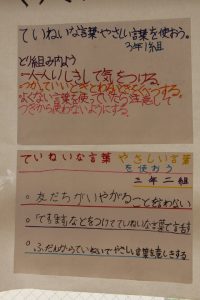 ていねいな言葉・やさしい言葉を使おう。
3年1組
とり組み内よう
一人一人いしきして気をつける。
つかっていいときとわるいときくべつする。
よくない言葉を使っていたら注意して
つぎから使わないようにする。
ていねいな言葉 やさしい言葉
を使おう
三年二組
○友だちがいやがることを言わない
○「です、ます」などをつけてていねいな言葉で言おう
○ふだんからていねいでやさしい言葉を意しきする